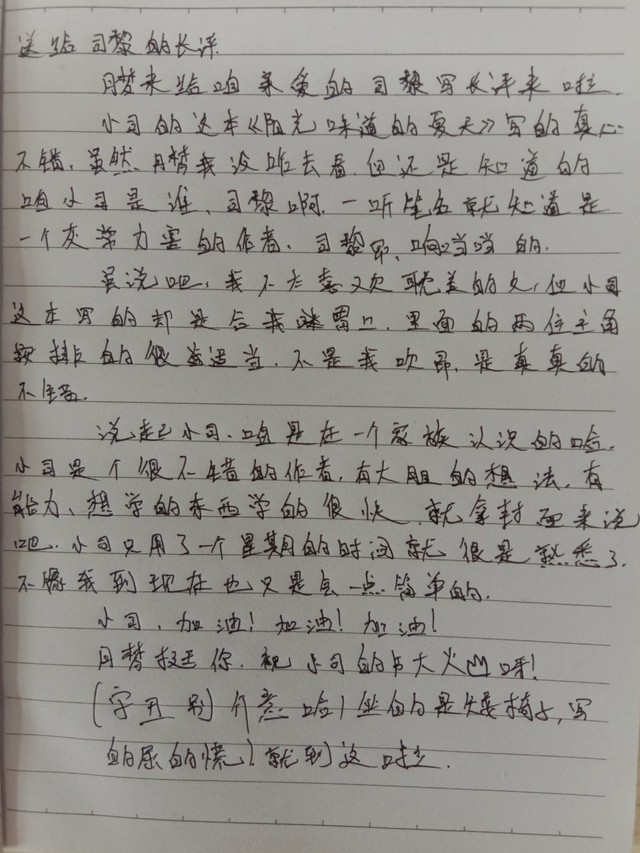 送给司黎的长评
月梦来给咱亲爱的司黎写长评来啦.
小司的这本《阳光味道的夏天》写的真心
不错,虽然月梦我没咋去看.但还是知道的
咱小司是谁、司黎啊.一听笔名就知道是
一个灰常力害的作者、司黎昂、响当当的.
虽说吧,我不太喜欢耽美的文,但小司
这本写的却是合我胃口.里面的两位主角
安排的很适当.不是我吹昂,是真真的
不错.
说起小司、咱是在一个家族认识的哈.
小司是个很不错的作者,有大胆的想法,有
能力、想学的东西学的很快.就拿封面来说
吧.小司只用了一个星期的时间就很是熟悉了.
不像我到现在也只是会一点简单的.
小司,加油!加油!加油!
月梦挺你.祝小司的书大火呀!
(字丑别介意哈)坐的是矮椅子,写
的尿的慌)就到这啦.